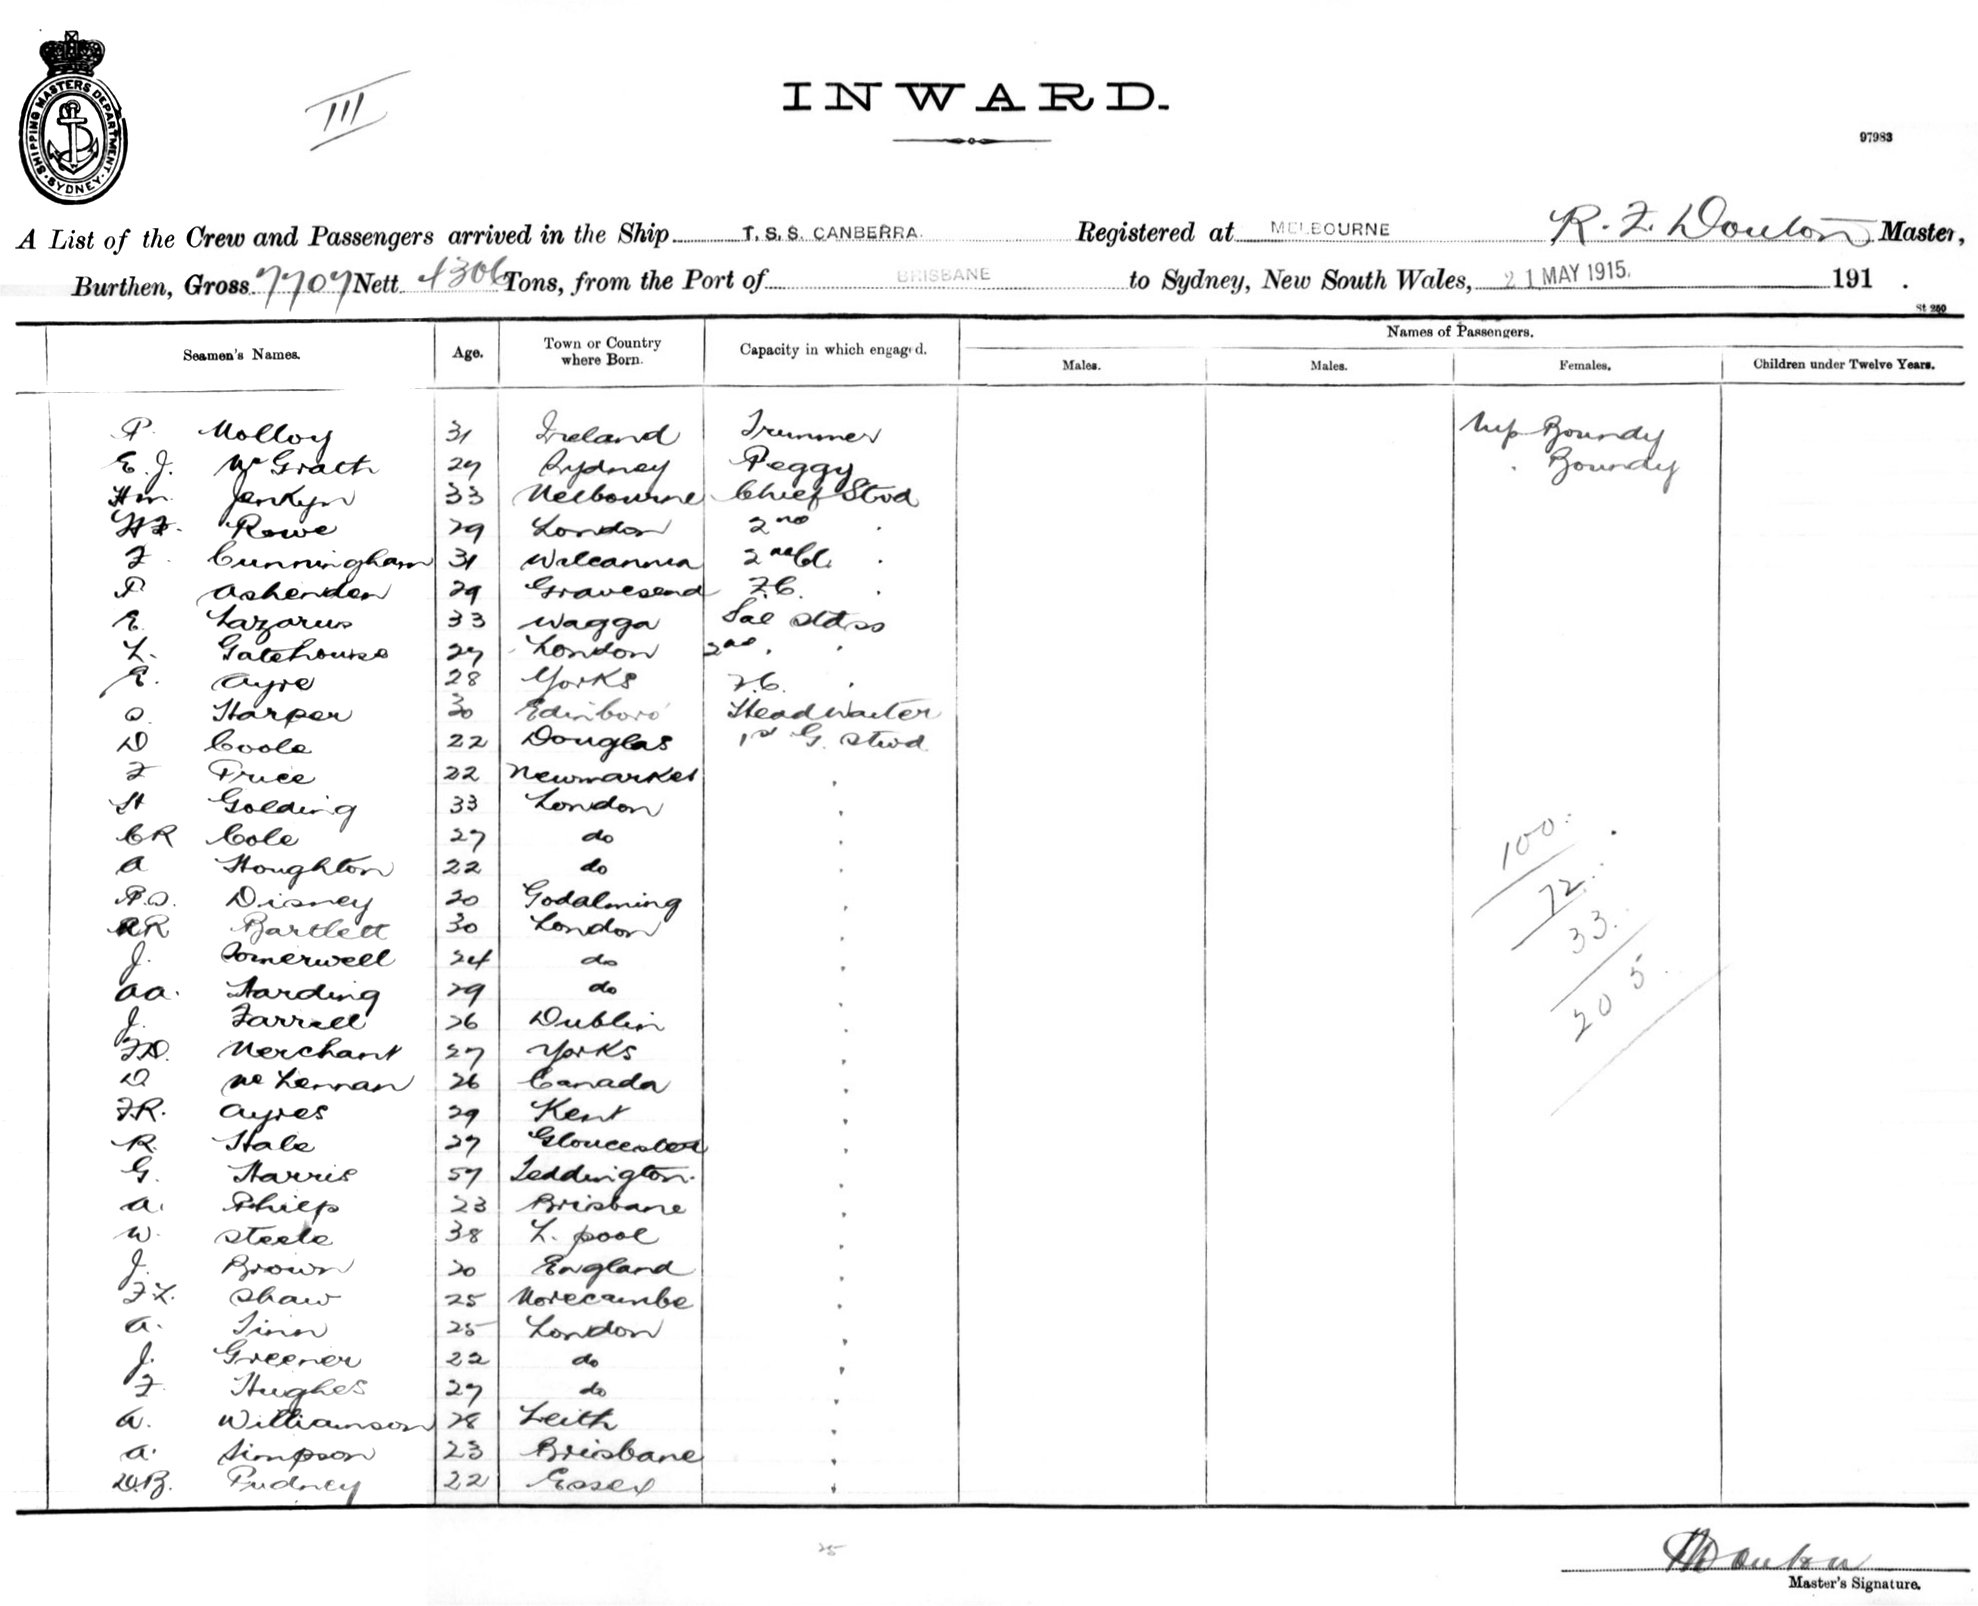 SHIPPING MASTERS DEPARTMENT. SYDNEY
III
INWARD.
97983
A List of the Crew and Passengers arrived in the Ship T.S.S. CANBERRA. Registered at MELBOURNE R. F. Douton Master,
Burthen, Gross 7707 Nett 4306 Tons, from the Port of BRISBANE to Sydney, New South Wales, 21 MAY 1915. 191 .
St 260
Seamen's Names. Age. Town or Country where Born. Capacity in which engaged. Names of Passengers.
Males. Males. Females. Children under Twelve Years.
P. Molloy 31 Ireland Trimmer Boundy
E. J. McGrath 27 Sydney Peggy . Boundy
Wm. Jenkyn 33 Melbourne Chief Stwd
Rowe 29 London 2nd "
F. Cunningham 31 Wilcannia 2nd Cl. "
P Ashenden 29 Gravesend F.C. "
E. Lazarus 33 Wagga Sal Stdss
L. Gatehouse 27 London 2nd " "
E. Ayre 28 Yorks F.C. "
O. Harper 30 Edinboro' Head Waiter
D Coole 22 Douglas 1st G. Stwd
F Price 22 Newmarket "
H Golding 33 London "
CR Cole 27 do "
A Houghton 22 do "
P.O. Disney 20 Godalming "
RR Bartlett 30 London "
J. Somerwell 24 do "
AA. Harding 29 do "
J. Farrell 26 Dublin "
FD. Merchant 27 Yorks "
D McLennan 26 Canada "
F.R. Ayres 29 Kent "
R. Hale 27 Gloucester "
G. Harris 57 Teddington. "
A. Philp 23 Brisbane "
W. Steele 38 L. pool "
J. Brown 20 England "
F.L. Shaw 25 Morecambe "
A. Tinn 25 London "
J. Greener 22 do "
F. Hughes 27 do "
A. Williamson 28 Leith "
A. Simpson 23 Brisbane "
W.B. Pudney 22 Essex "
100.
72.
33.
205.
25
R Douton
Master's Signature.